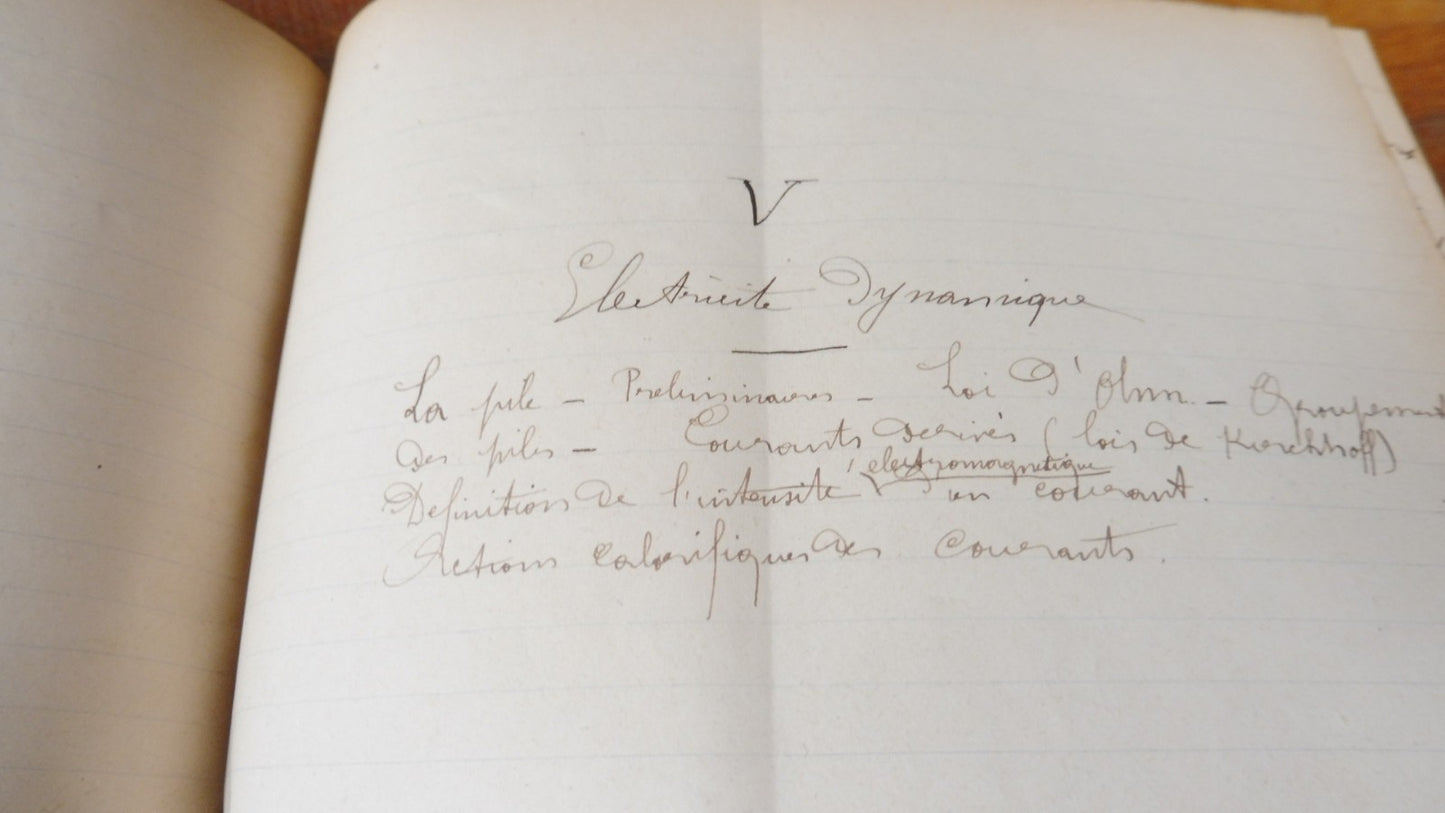 V
Electricite Dynamique
La pile - Preliminaires - Loi d'Ohm. - Groupement
des piles - Courants derivés (lois de Kirchhoff)
electromagnetique
Definition de l'intensité d'un courant.
Actions calorifiques des courants.